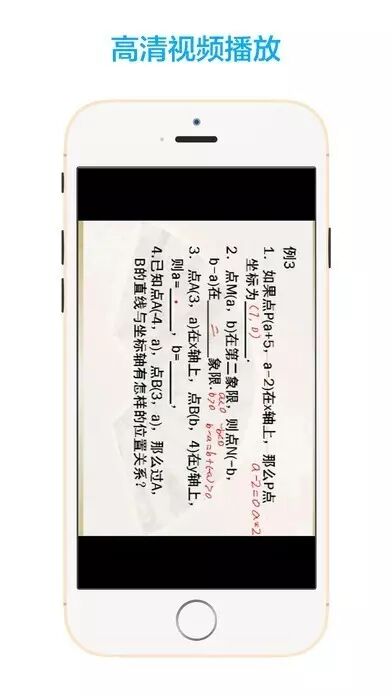 高清视频播放
例3
1. 如果点P(a+5, a-2)在x轴上，那么P点
a-2=0 a=2
坐标为(7, 0).
2. 点M(a, b)在第二象限，则点N(-b,
a<0 -b<0
b-a)在 二 象限.
b>0 b-a=b+(-a)>0
3. 点A(3, a)在x轴上，点B(b, 4)在y轴上，
则a=____, b=____.
4.已知点A(-4, a)，点B(3, a)，那么过A,
B的直线与坐标轴有怎样的位置关系？